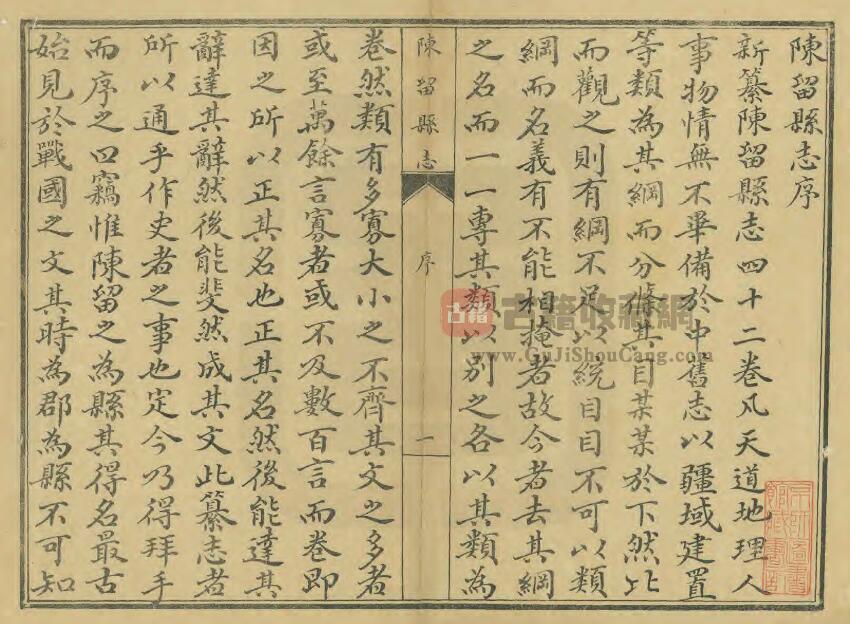 陳留縣志序
新纂陳留縣志四十二卷凡天道地理人
事物情無不畢備於中舊志以疆域建置
等類為其綱而分條其目某某於下然比
而觀之則有綱不足以統目目不可以類
綱而名義有不能相掩者故今者去其綱
之名而一一專其類以別之各以其類為
陳留縣志
序
一
卷然類有多寡大小之不齊其文之多者
或至萬餘言寡者或不及數百言而卷即
因之所以正其名也正其名然後能達其
辭達其辭然後能斐然成其文此纂志者
所以通乎作史者之事也定今乃得拜手
而序之曰竊惟陳留之為縣其得名最古
始見於戰國之文其時為郡為縣不可知
古籍
古籍收藏網
www.GuJiShouCang.com